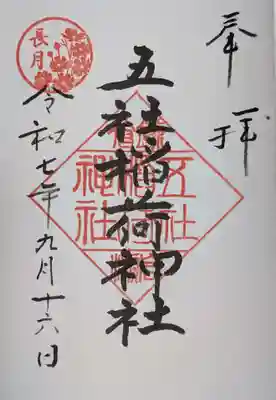 奉拝
五社稲荷神社
五社
神社
長月
令和七年九月十六日